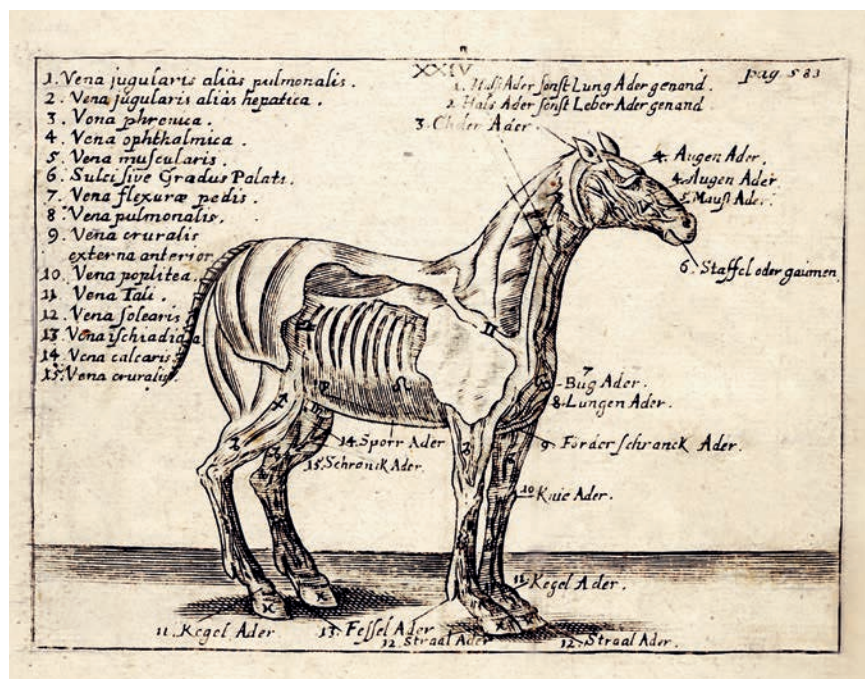 XXIV
pag. 583
1. Vena jugularis aliàs pulmonalis.
2. Vena jugularis aliàs hepatica.
3. Vena phrenica.
4. Vena ophthalmica.
5. Vena muscularis.
6. Sulci sive Gradus Palati.
7. Vena flexuræ pedis.
8. Vena pulmonalis.
9. Vena cruralis
externa anterior
10. Vena poplitea.
11. Vena Tali.
12. Vena solearis
13. Vena ischiadica
14. Vena calcaris.
15. Vena cruralis.
1. Halß Ader sonst Lung Ader genand.
2. Halß Ader sonst Leber Ader genand
3. Ader
4. Augen Ader.
4. Augen Ader
5. Mauß Ader.
6. Staffel oder gaumen
7
Bug Ader.
8. Lungen Ader.
9. Förder schranck Ader.
14. Sporr Ader
15. Schranck Ader.
10. Knie Ader.
11. Kegel Ader.
11. Kegel Ader
13. Fessel Ader
12. Straal Ader
12. Straal Ader.